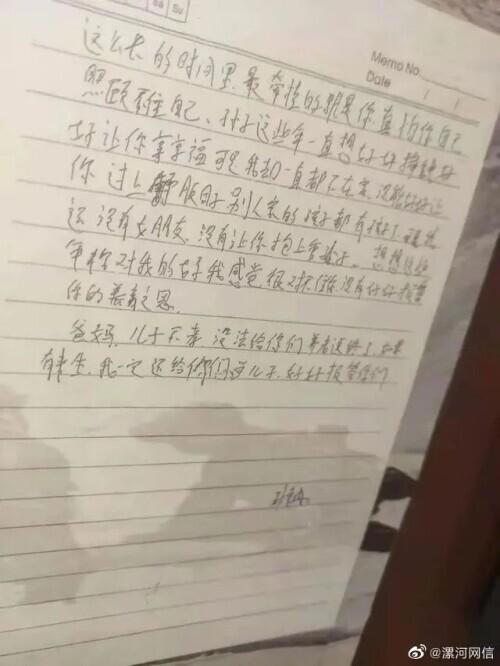 Sa Su
Memo No.
Date / /
这么长的时间里最牵挂的就是你,真怕你自己
照顾不住自己、孙子这些年一直想好好挣钱好
好让你享享福可是我却一直都不在家,没能好好让
你过上舒服日子别人家的孩子都有孩子了,
还没有女朋友,没有让你抱上重孙子,想想这些
年你对我的好我感觉很对不起你,没有好好报答
你的养育之恩.
爸妈,儿子不孝 没法给你们养老送终了,如果
有来生,我一定还给你们当儿子,好好报答你们
@漯河网信